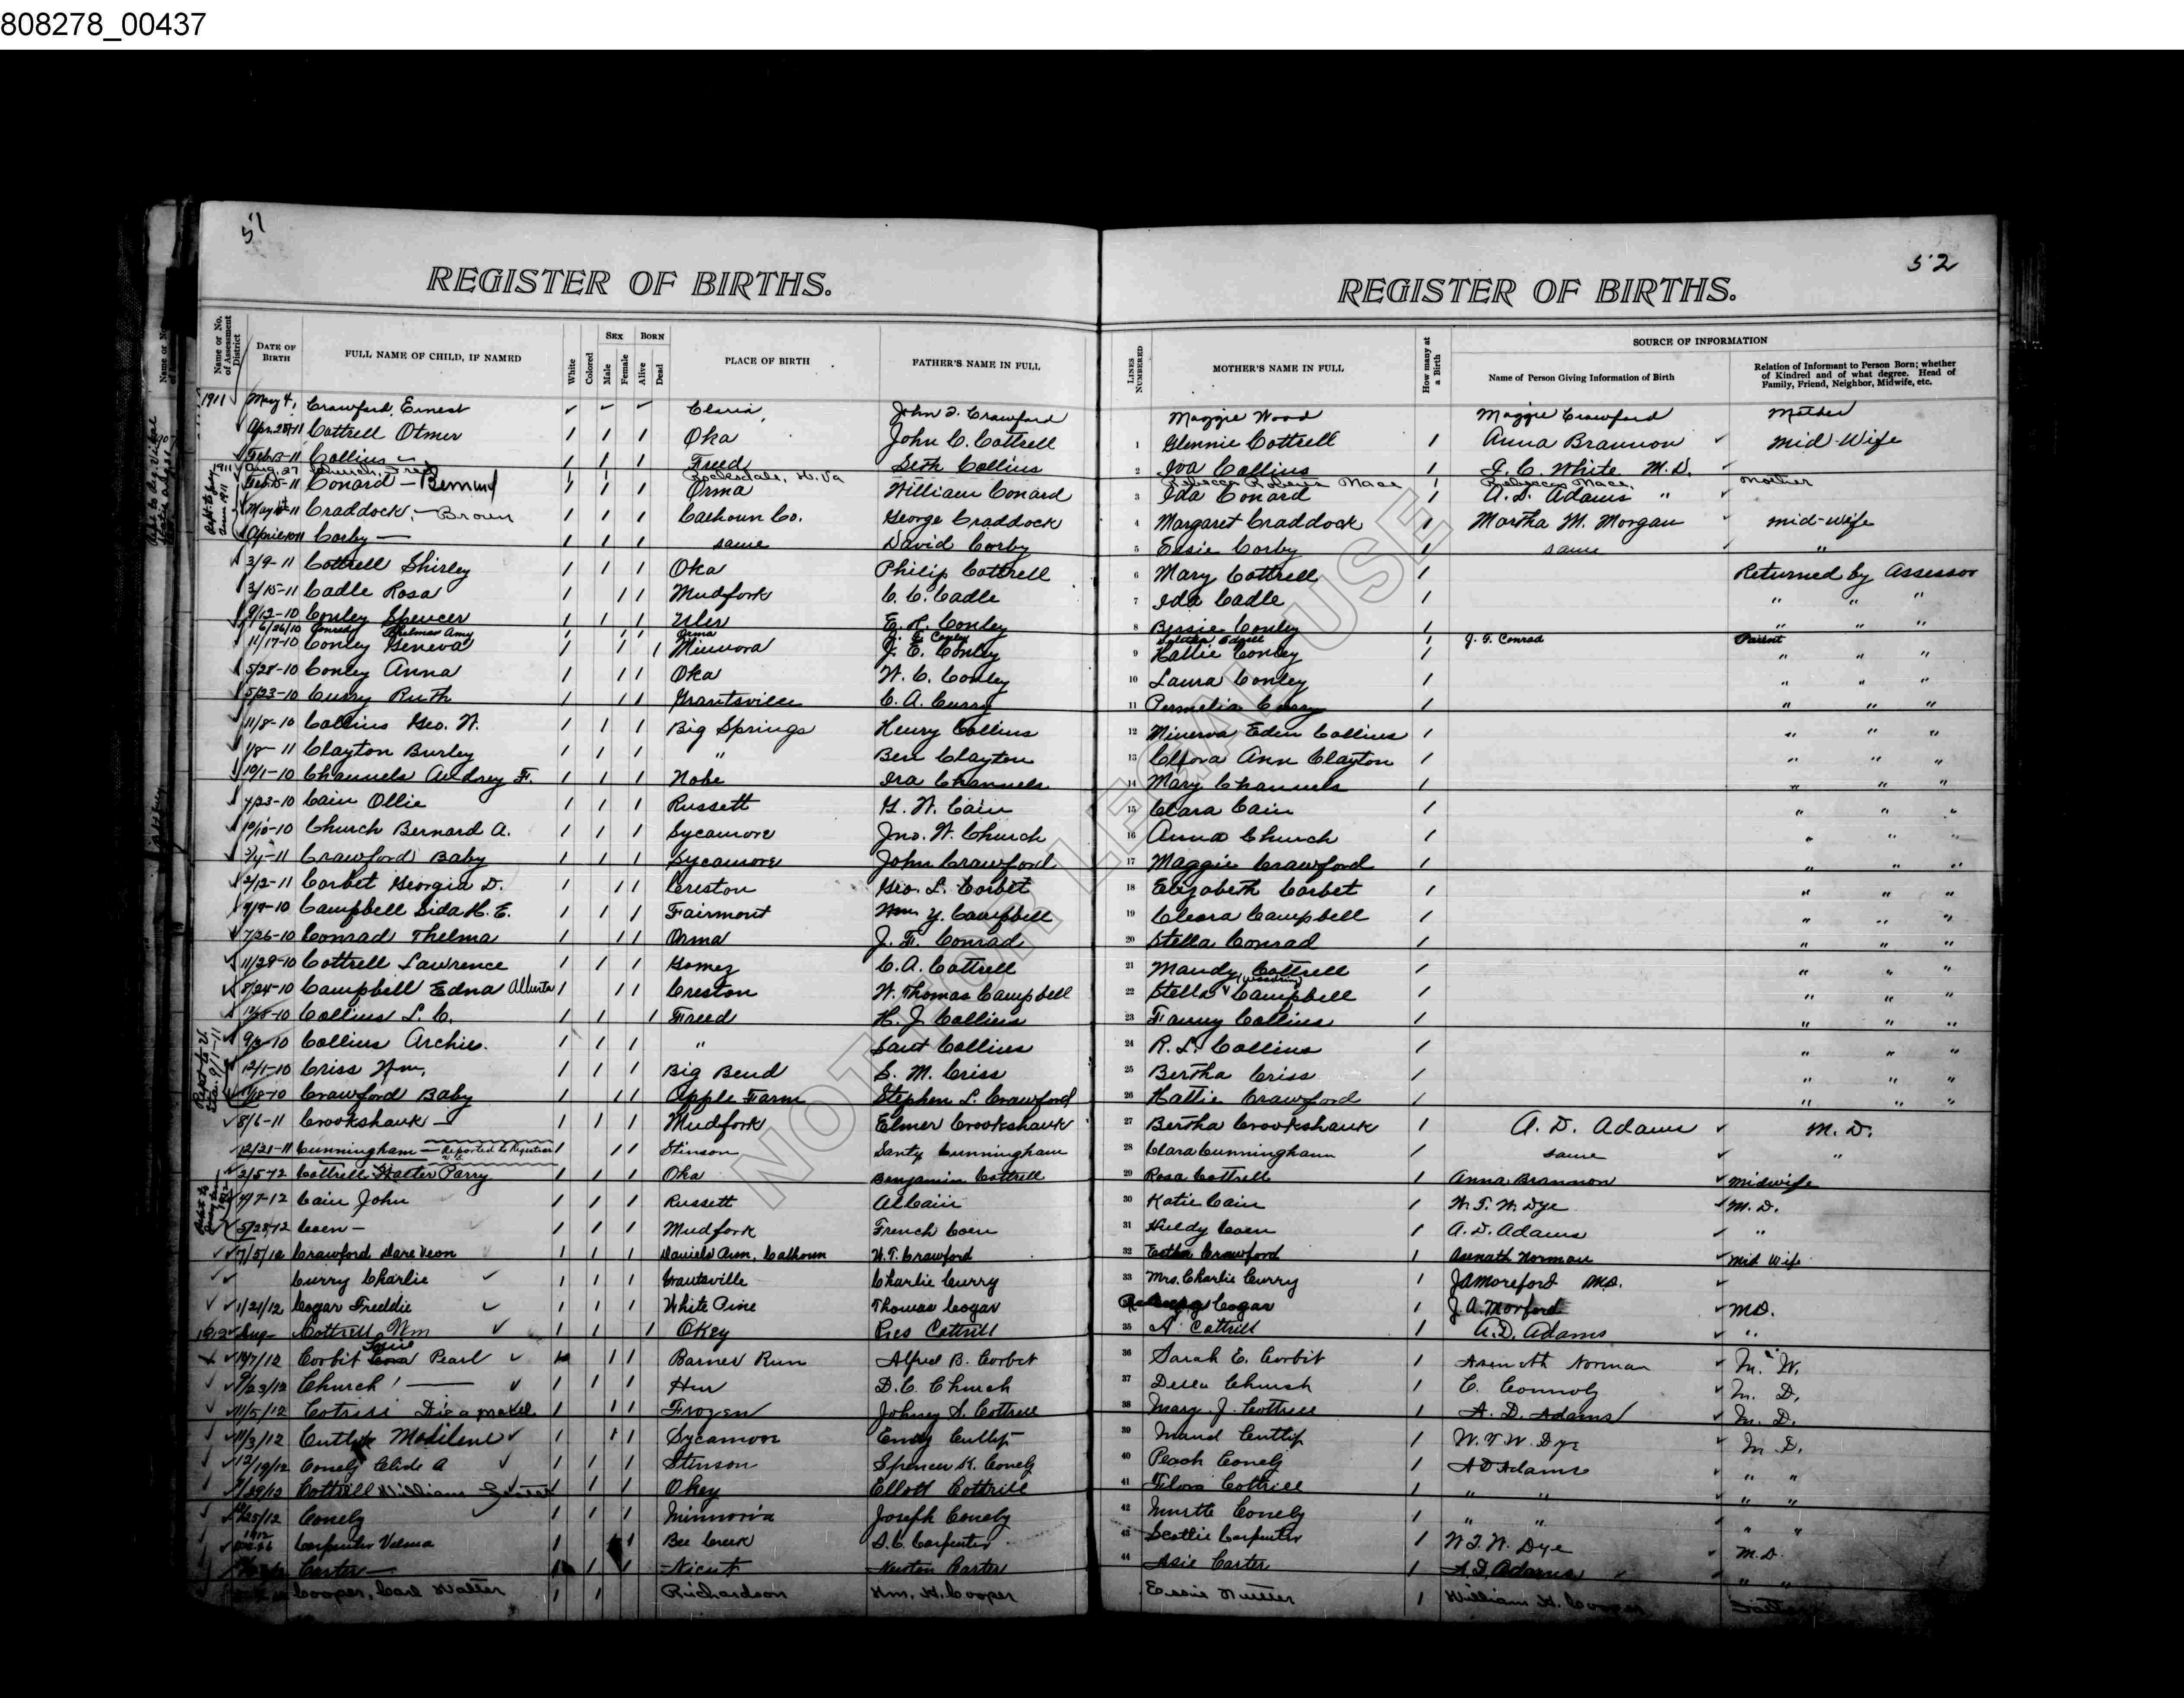 808278_00437
51
REGISTER OF BIRTHS.
Name or No. of Assessment District
DATE OF BIRTH
FULL NAME OF CHILD, IF NAMED
White
Colored
SEX
Male
Female
BORN
Alive
Dead
PLACE OF BIRTH
FATHER'S NAME IN FULL
1911 May 4, Crawford, Ernest Claria, John I. Crawford
Cottrell Otmer Oka John C. Cottrell
Feb 3-11 Collins — Freed Seth Collins
1911 Aug. 27 Church, Fred Rocksdale, W. Va
Conard — Bernard Orma William Conard
Craddock, — Brown Calhoun Co. George Craddock
Corby — same David Corby
3/9-11 Cottrell Shirley Oka Philip Cottrell
3/15-11 Cadle Rosa Mudfork C. C. Cadle
9/12-10 Conley Spencer Uler E. H. Conley
6/26/10 Conrad Thelmas Amy Orma
11/17-10 Conley Geneva Minnora J. E. Conley
5/28-10 Conley Anna Oka W. C. Conley
5/23-10 Curry Ruth Grantsville C. A. Curry
11/8-10 Collins Geo. W. Big Springs Henry Collins
1/8-11 Clayton Burley " Ben Clayton
10/1-10 Channels Audrey F. Nobe Ira Channels
4/23-10 Cain Ollie Russett G. W. Cain
10/10-10 Church Bernard A. Sycamore Jno. W. Church
Crawford Baby Sycamore John Crawford
2/12-11 Corbet Georgia D. Creston Geo. L. Corbet
9/9-10 Campbell Sida H. E. Fairmont Wm. Y. Campbell
7/26-10 Conrad Thelma Orma J. F. Conrad
11/29-10 Cottrell Lawrence Gomez C. A. Cottrell
8/24-10 Campbell Edna Alberta Creston W. Thomas Campbell
Collins L. C. Freed H. J. Collins
Collins Archie. " Sant Collins
12/1-10 Criss Wm. Big Bend S. M. Criss
Crawford Baby Apple Farm Stephen L. Crawford
8/6-11 Crookshank — Mudfork Elmer Crookshank
12/21-11 Cunningham — Reported to Registrar Stinson Santy Cunningham
2/5-12 Cottrell Walter Parry Oka Benjamin Cottrell
4/7-12 Cain John Russett Al Cain
5/28-12 Coen — Mudfork French Coen
7/5/12 Crawford Dare Veon Daniels Run, Calhoun W. T. Crawford
Curry Charlie Grantsville Charlie Curry
1/21/12 Cogar Freddie White Pine Thomas Cogar
1912 Aug — Cottrell Wm Okey Pres Cottrill
Corbit Pearl Barnes Run Alfred B. Corbit
9/23/12 Church! — Hur D. C. Church
11/5/12 Frozen Johney S. Cottrell
11/3/12 Cutlip Madilene Sycamore Cutlip
12/19/12 Conely Clide A Stinson Spencer K. Conely
Cottrell William Okey Ellott Cottrill
Conely Minnora Joseph Conely
1912 Carpenter Velma Bee Creek S. C. Carpenter
Carter — Nicut Newton Carter
Cooper, Carl Walter Richardson Wm. H. Cooper
52
REGISTER OF BIRTHS.
LINES NUMBERED
MOTHER'S NAME IN FULL
How many at a Birth
SOURCE OF INFORMATION
Name of Person Giving Information of Birth
Relation of Informant to Person Born; whether of Kindred and of what degree. Head of Family, Friend, Neighbor, Midwife, etc.
Maggie Wood Maggie Crawford Mother
1 Glennie Cottrell 1 Anna Brannon mid-Wife
2 Iva Collins 1 J. C. White M.D.
Rebecca Roberts Mace 1 Rebecca Mace, Mother
3 Ida Conard 1 A. D. Adams "
4 Margaret Craddock 1 Martha M. Morgan mid-wife
5 Essie Corby 1 same "
6 Mary Cottrell 1 Returned by Assessor
7 Ida Cadle 1 " " "
8 Bessie Conley 1 " " "
1 J. F. Conrad Parent
9 Hattie Conley 1 " " "
10 Laura Conley 1 " " "
11 Permelia Curry 1 " " "
12 Minerva Eden Collins 1 " " "
13 Ann Clayton 1 " " "
14 Mary Channels 1 " " "
15 Clara Cain 1 " " "
16 Anna Church 1 " " "
17 Maggie Crawford 1 " " "
18 Elizabeth Corbet 1 " " "
19 Cleora Campbell 1 " " "
20 Stella Conrad 1 " " "
21 Mandy Cottrell 1 " " "
22 Stella Campbell 1 " " "
23 Fanny Collins 1 " " "
24 R. L. Collins 1 " " "
25 Bertha Criss 1 " " "
26 Hattie Crawford 1 " " "
27 Bertha Crookshank 1 A. D. Adams M. D.
28 Clara Cunningham 1 same "
29 Rosa Cottrell 1 Anna Brannon midwife
30 Katie Cain 1 W. T. W. Dye M. D.
31 Huldy Coen 1 A. D. Adams "
32 Crawford 1 Asenath Norman Mid Wife
33 Mrs. Charlie Curry 1 J A Moreford M.D.
Cogar 1 J. A. Morford M.D.
35 A Cottrill 1 A. D. Adams "
36 Sarah E. Corbit 1 Asenath Norman M. W.
37 Della Church 1 C. Connoly M. D.
38 Mary J. Cottrell 1 A. D. Adams M. D.
39 Maud Cutlip 1 W. T. W. Dye M. D.
40 Peach Conely 1 A D Adams " "
41 Flora Cottrill 1 " " " "
42 Murtle Conely 1 " " " "
43 Scottie Carpenter 1 W. T. W. Dye M. D.
44 Asie Carter 1 A. D. Adams " "
Essie 1 William H. Cooper
NOT FOR LEGAL USE